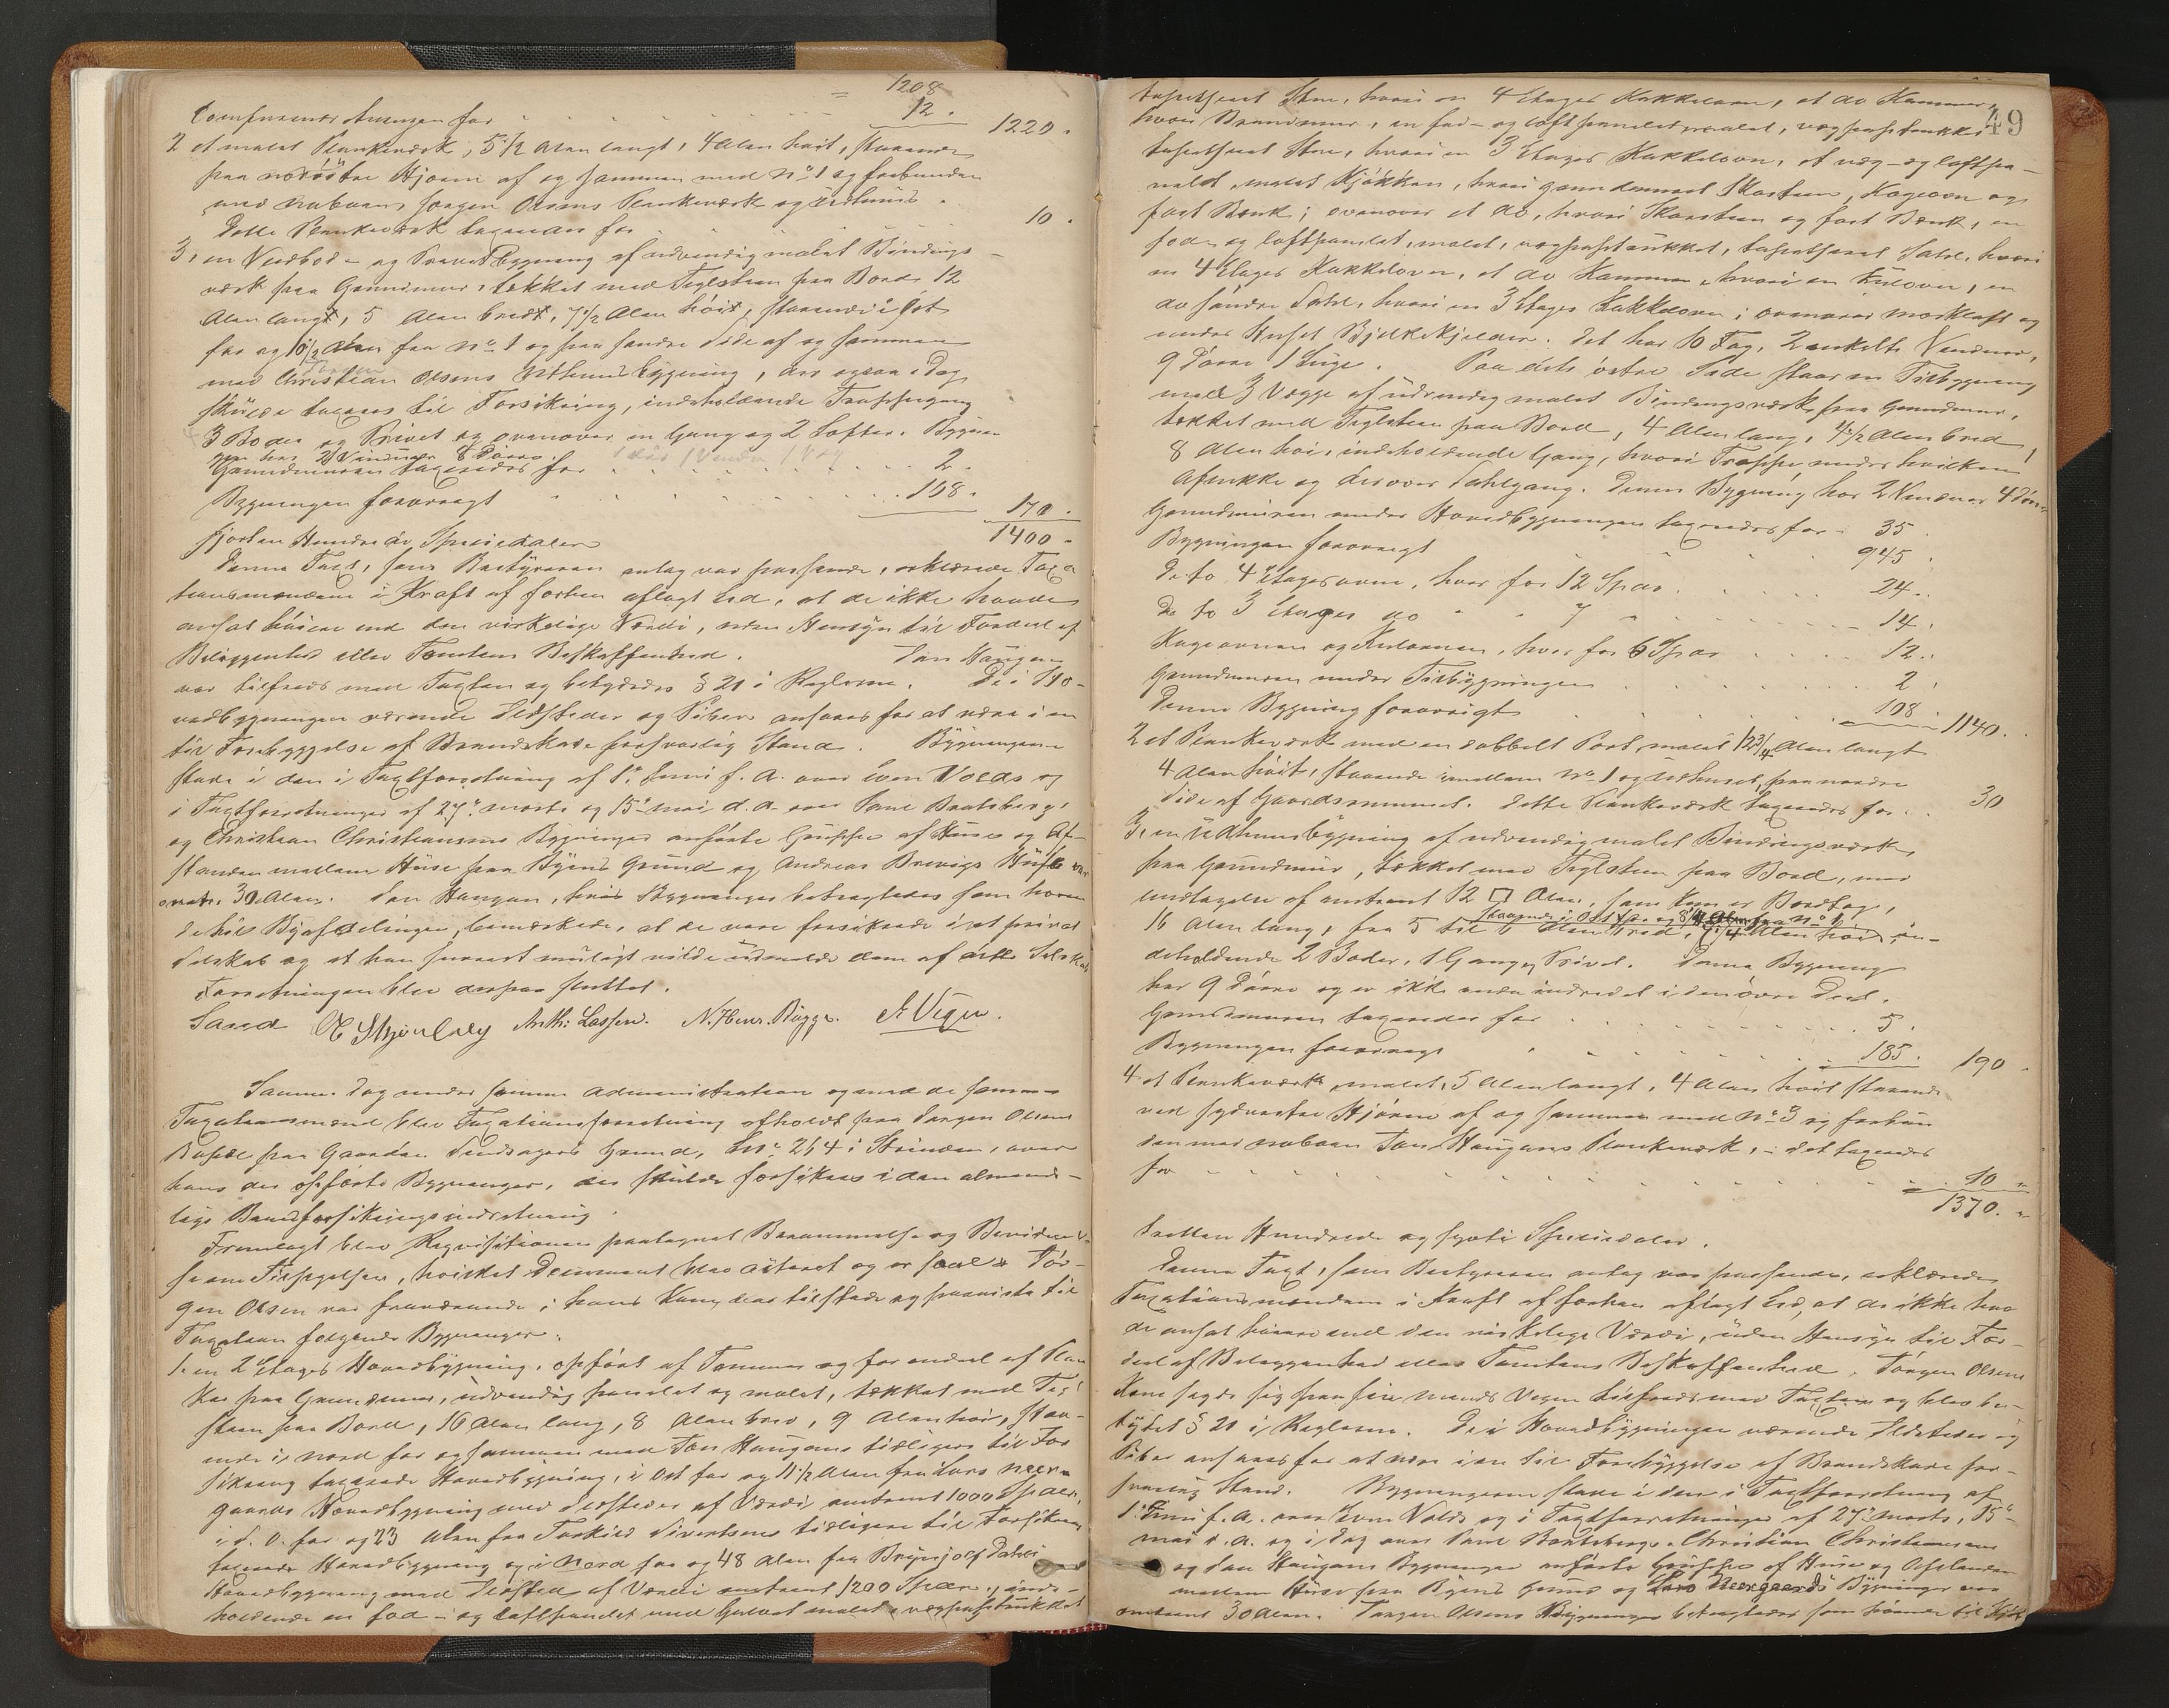 1208
12. 1220.
2 et malet Plankeværk, 5 1/2 Alen langt, 4 Alen høit, staaende
paa Hjørne af og sammen med No 1 og forbunden
med naboen Jørgen Olsens Plankeværk og Udhuus.
Dette Plankeværk taxeredes for 10.
3, en Vedbod- og Privetbygning af udvendig malet Bindings-
værk paa Grundmur, tækket med Tagsteen paa Bord, 12
Alen langt, 5 Alen bredt, 7 1/2 Alen høit, staaende i Øst
for og 10 1/2 Alen fra No 1 og paa søndre Side af og sammen
med Christian Olsens Udhuusbygning, der ogsaa i Dag
skulde taxeres til Forsikring, indeholdende Trappegang
3 Boder og Privet og ovenover en Gang og 2 Lofter. Bygnin-
gen har 2 Vinduer 8 Dørre.
Grundmuren taxeredes for 2.
Bygningen forøvrigt 168.
170.
fjorten Hundrede Speciedaler 1400.
Denne Taxt, som Bestyreren antog var passende, erklærede Taxa-
tionsmændene i Kraft af forhen aflagt Eed, at de ikke havde
ansat høiere end den virkelige Værdi, uden Hensyn til Fordeel af
Beliggenhed eller Tomtens Beskaffenhed. Jon Haugen
var tilfreds med Taxten og betydedes § 21 i Reglerne. De i Ho-
vedbygningen værende Ildsteder og Piber ansaaes for at være i en
til Forebyggelse af Brandskade forsvarlig Stand. Bygningerne
staae i den i Taxtforretning af 1ste Juni f. A. over Even Volds og
i Taxtforretninger af 27de Marts og 15de Mai d. A. over Bratsbergs
og Christian Christiansens Bygninger anførte Gruppe af Huse og Af-
standen mellem Huse paa Byens Grund og Andreas Brevigs Huse var
omtr. 30 Alen. Jon Haugen, hvis Bygninger betragtedes som hørende
til Byafdelingen, bemærkede, at de vare forsikrede i et privat
Selskab og at han snarest muligt vilde udmelde dem af dette Selskab
Forretningen blev derpaa sluttet.
Anth: Lassen. N. Henr. Bugge.
Samme Dag under samme Administration og med de samme
Taxationsmænd blev Taxationsforretning afholdt paa Jørgen Olsens
Bopæl paa Gaarden Grund, 264 i Strinden, over
hans der opførte Bygninger, der skulde forsikres i den alminde-
lige Brandforsikringsindretning.
Fremlagt blev Requisitionen paategnet Berammelse og Beviidnel-
se om Tilsigelsen, hvilket Document blev citeret og er saal: Jør-
gen Olsen var fraværende; hans Kone var tilstede og paaviste til
Taxation følgende Bygninger:
1. en 2 Etages Hovedbygning, opført af Tømmer og for endeel af Plan-
ker paa Grundmur, udvendig panelet og malet, tækket med Tag-
steen paa Bord, 16 Alen lang, 8 Alen bred, 9 Alen høi, staa-
ende i Nord for og sammen med Jon Haugens tidligere til For-
sikring taxerede Hovedbygning, i Øst for og 11 1/2 Alen fra Lars Neer-
gaards Hovedbygning med Ildsteder af Værdi omtrent 1000 Spdlr.,
i S. O. for og 23 Alen fra Torkild Sivertsens tidligere til Forsikring
taxerede Hovedbygning og i Nord for og 48 Alen fra Brynjolf Dahls
Hovedbygning med Ildsted af Værdi omtrent 1200 Spdlr., inde-
holdende en fod- og loftpanelet med Gulvet malet, vægpapstrukket
49
tapetseret Stue, hvori en 4 Etages Kakkelovn, et do Kammer,
hvori Brandmur, en fod- og loftpanelet malet, vægpapstrukket
tapetseret Stue, hvori en 3 Etages Kakkelovn, et væg- og loftpa-
nelet, malet Kjøkken, hvori grundmuret Skorsteen, Kogeovn og
fast Bænk; ovenover et do, hvori Skorsteen og fast Bænk, en
fod- og loftpanelet, malet, vægpapstrukket, tapetseret Sahl, hvori
en 4 Etages Kakkelovn, et do Kammer, hvori en Kulovn, en
do søndre Sahl, hvori en 3 Etages Kakkelovn; ovenover Mørkloft og
under Huset Bjelkekjelder. Det har 10 Fag, 2 enkelte Vinduer,
9 Dørre 1 Luge. Paa dets østre Side staar en Tilbygning
med 3 Vægge af udvendig malet Bindingsværk paa Grundmur,
tækket med Tagsteen paa Bord, 4 Alen lang, 4 1/2 Alen bred,
8 Alen høi, indeholdende Gang, hvori Trappe, under hvilken
Aflukke og derover Sahlgang. Denne Bygning har 2 Vinduer 4 Dørre
Grundmuren under Hovedbygningen taxeredes for 35.
Bygningen forøvrigt 945.
De to 4 Etagesovne, hver for 12 Spdlr 24.
De to 3 Etages do " " 7 " 14.
Kogeovnen og Kulovnen, hver for 6 Spdlr 12.
Grundmuren under Tilbygningen 2.
Denne Bygning forøvrigt 108. 1140.
2 et Plankeværk med en dobbelt Port, malet 12 3/4 Alen langt
4 Alen høit, staaende imellem No 1 og Udhuset paa nordre
Side af Gaardsrummet. Dette Plankeværk taxeredes for 30
3, en Udhuusbygning af udvendig malet Bindingsværk,
paa Grundmur, tækket med Tagsteen paa Bord, med
Undtagelse af omtrent 12 □ Alen, som kun er Bordtag,
staaende i Øst for og 8 1/4 Alen fra No 1,
16 Alen lang, fra 5 til 6 Alen bred, 7 1/4 Alen høi, in-
deholdende 2 Boder, 1 Gang og Privet. Denne Bygning
har 9 Dørre og er ikke endnu indredet i den øvre Deel.
Grundmuren taxeredes for 5.
Bygningen forøvrigt 185. 190.
4 et Plankeværk, malet, 5 Alen langt, 4 Alen høit staaende
ved sydvestre Hjørne af og sammen med No 3 og forbun-
den med naboen Jon Haugens Plankeværk, det taxeredes
for 10.
1370.
Tretten Hundrede og sytti Speciedaler.
Denne Taxt, som Bestyreren antog var passende, erklærede
Taxationsmændene i Kraft af forhen aflagt Eed, at de ikke hav-
de ansat høiere end den virkelige Værdi, uden Hensyn til For-
deel af Beliggenhed eller Tomtens Beskaffenhed. Jørgen Olsens
Kone sagde sig paa sin Mands Vegne tilfreds med Taxten og blev be-
tydet § 21 i Reglerne. De i Hovedbygningen værende Ildsteder og
Piber ansaaes for at være i en til Forebyggelse af Brandskade for-
svarlig Stand. Bygningerne staae i den i Taxtforretning af
1ste Juni f. A. over Even Volds og i Taxtforretninger af 27de Marts, 15de
Mai d. A. og i Dag over Bratsbergs, Christian Christiansens
og Jon Haugens Bygninger anførte Gruppe af Huse og Afstanden
mellem Huse paa Byens Grund og Lars Neergaards Bygninger var
omtrent 30 Alen. Jørgen Olsens Bygninger betragtedes som hørende til